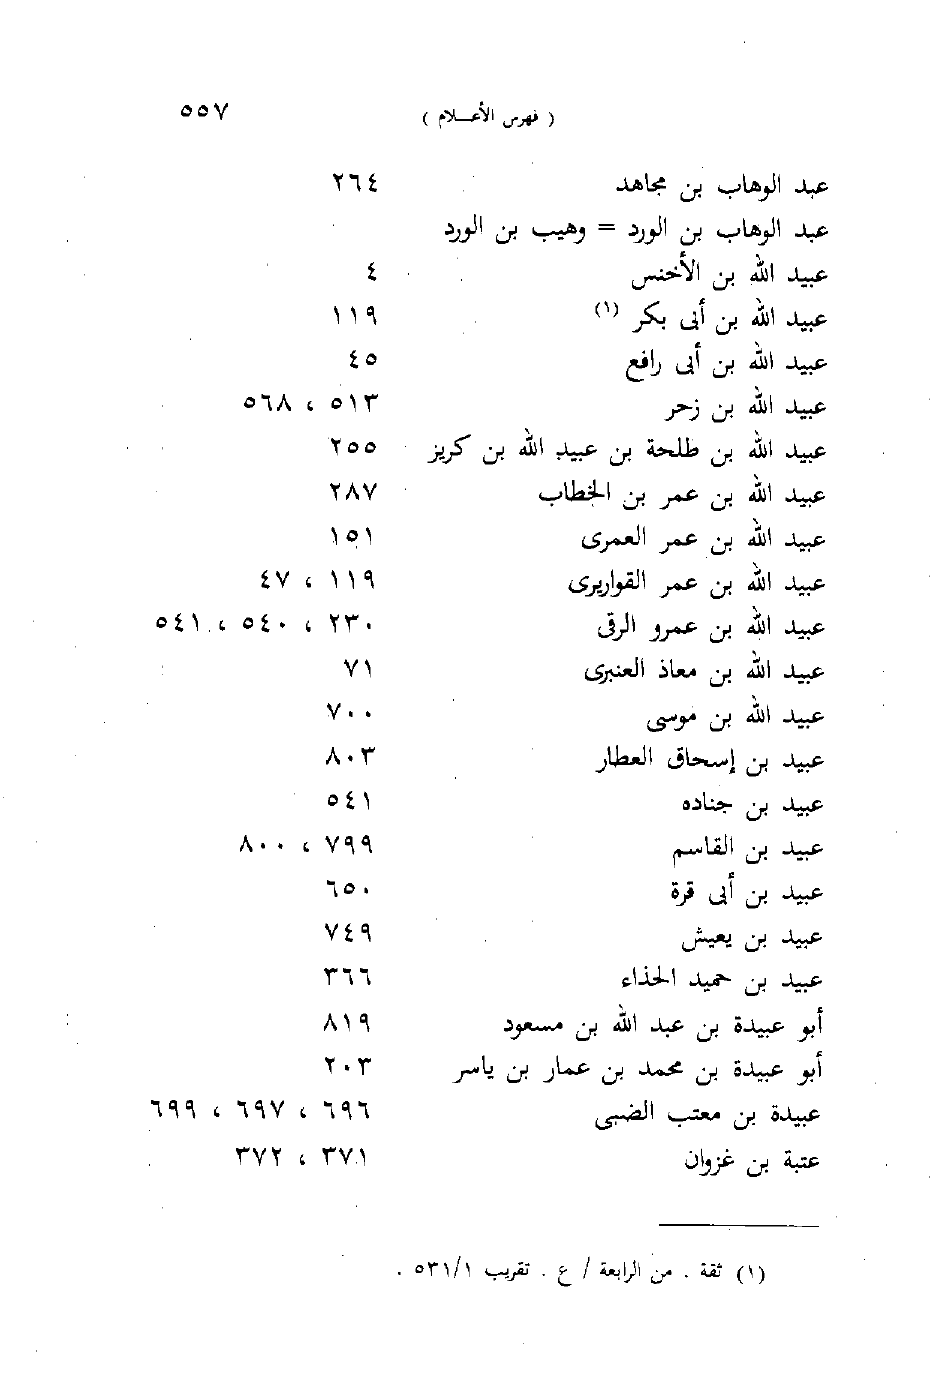 ( فهرس الأعـــلام ) ٥٥٧
عبد الوهاب بن مجاهد ٢٦٤
عبد الوهاب بن الورد = وهيب بن الورد
عبيد الله بن الأخنس ٤
عبيد الله بن أبى بكر (١) ١١٩
عبيد الله بن أبى رافع ٤٥
عبيد الله بن زحر ٥١٣ ، ٥٦٨
عبيد الله بن طلحة بن عبيد الله بن كريز ٢٥٥
عبيد الله بن عمر بن الخطاب ٢٨٧
عبيد الله بن عمر العمرى ١٥١
عبيد الله بن عمر القواريرى ١١٩ ، ٤٧
عبيد الله بن عمرو الرقى ٢٣٠ ، ٥٤٠ ، ٥٤١
عبيد الله بن معاذ العنبرى ٧١
عبيد الله بن موسى ٧٠٠
عبيد بن إسحاق العطار ٨٠٣
عبيد بن جناده ٥٤١
عبيد بن القاسم ٧٩٩ ، ٨٠٠
عبيد بن أبى قرة ٦٥٠
عبيد بن يعيش ٧٤٩
عبيد بن حميد الحذاء ٣٦٦
أبو عبيدة بن عبد الله بن مسعود ٨١٩
أبو عبيدة بن محمد بن عمار بن ياسر ٢٠٣
عبيدة بن معتب الضبى ٦٩٦ ، ٦٩٧ ، ٦٩٩
عتبة بن غزوان ٣٧١ ، ٣٧٢
(١) ثقة . من الرابعة / ع . تقريب ٥٣١/١ .